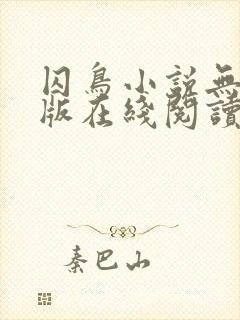 囚鳥小説無
版在綫閱讀
秦巴山